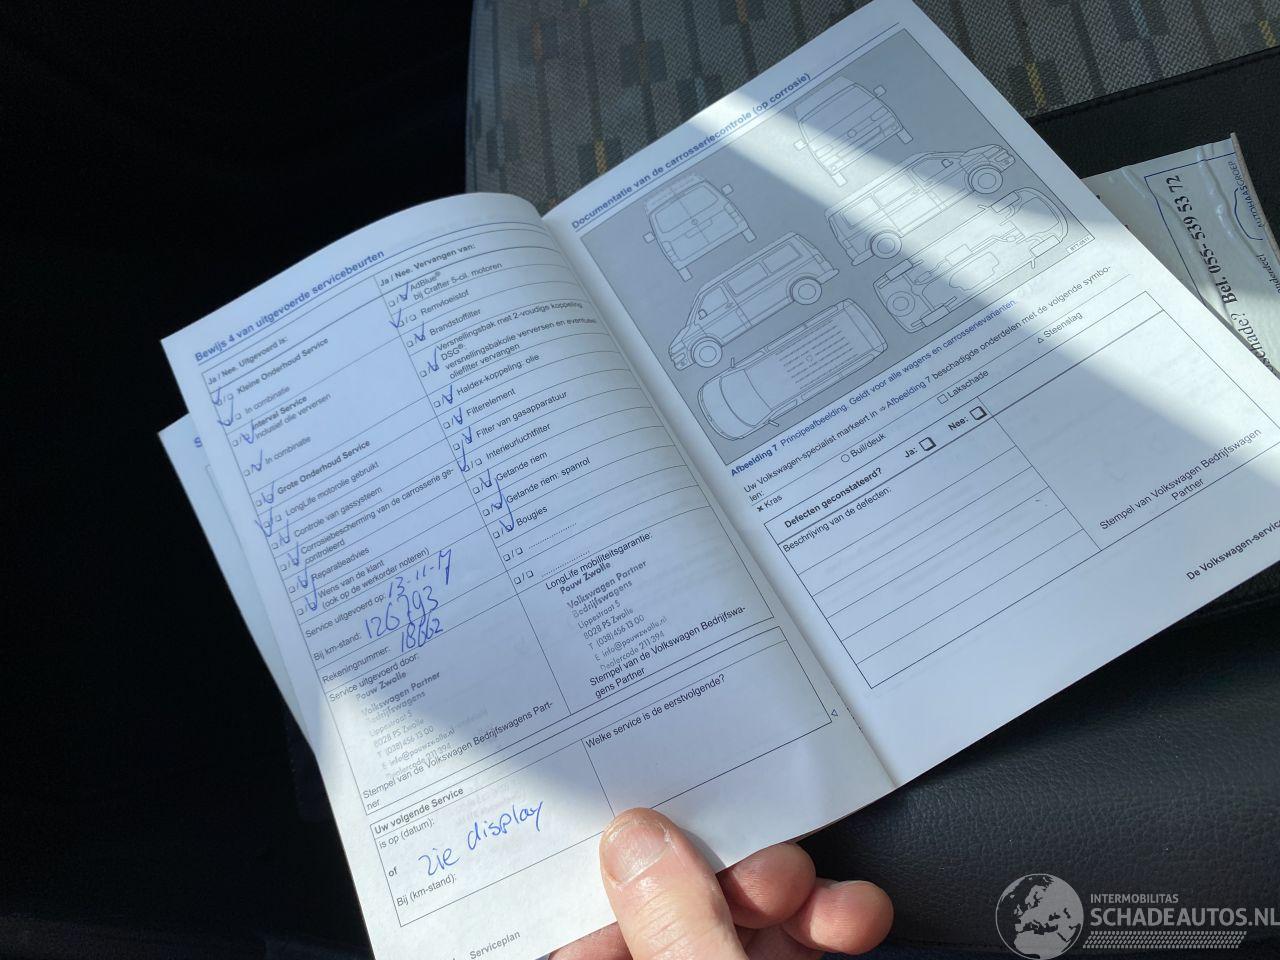 Bewijs 4 van uitgevoerde servicebeurten
Ja / Nee. Uitgevoerd is:
Kleine Onderhoud Service
In combinatie
Interval Service
inclusief olie verversen
In combinatie
Grote Onderhoud Service
LongLife motorolie gebruikt
Controle van gassysteem
Corrosiebescherming van de carrosserie ge-
controleerd
Reparatieadvies
Wens van de klant
(ook op de werkorder noteren)
Service uitgevoerd op: 13-11-17
Bij km-stand: 126293
Rekeningnummer: 18662
Service uitgevoerd door:
Pouw Zwolle
Volkswagen Partner
Bedrijfswagens
Lippestraat 5
8028 PS Zwolle
T (038) 456 13 00
E info@pouwzwolle.nl
Dealercode 211 394
Stempel van de Volkswagen Bedrijfswagens Part-
ner
Ja / Nee. Vervangen van:
AdBlue®
bij Crafter 5-cil. motoren
Remvloeistof
Brandstoffilter
Versnellingsbak met 2-voudige koppeling
DSG®:
versnellingsbakolie verversen en eventueel
oliefilter vervangen
Haldex-koppeling: olie
Filterelement
Filter van gasapparatuur
Interieurluchtfilter
Getande riem
Getande riem: spanrol
Bougies
LongLife mobiliteitsgarantie:
Pouw Zwolle
Volkswagen Partner
Bedrijfswagens
Lippestraat 5
8028 PS Zwolle
T (038) 456 13 00
E info@pouwzwolle.nl
Dealercode 211 394
Stempel van de Volkswagen Bedrijfswa-
gens Partner
Uw volgende Service
is op (datum):
of zie display
Bij (km-stand):
Welke service is de eerstvolgende?
Serviceplan
Documentatie van de carrosseriecontrole (op corrosie)
Afbeelding 7 Principeafbeelding. Geldt voor alle wagens en carrosserievarianten.
Uw Volkswagen-specialist markeert in ⇒ Afbeelding 7 beschadigde onderdelen met de volgende symbo-
len:
× Kras
○ Buil/deuk
□ Lakschade
△ Steenslag
Defecten geconstateerd? Ja: Nee:
Beschrijving van de defecten:
Stempel van Volkswagen Bedrijfswagen
Partner
De Volkswagen-service
schade? Bel. 055- 539 53 72
INTERMOBILITAS
SCHADEAUTOS.NL